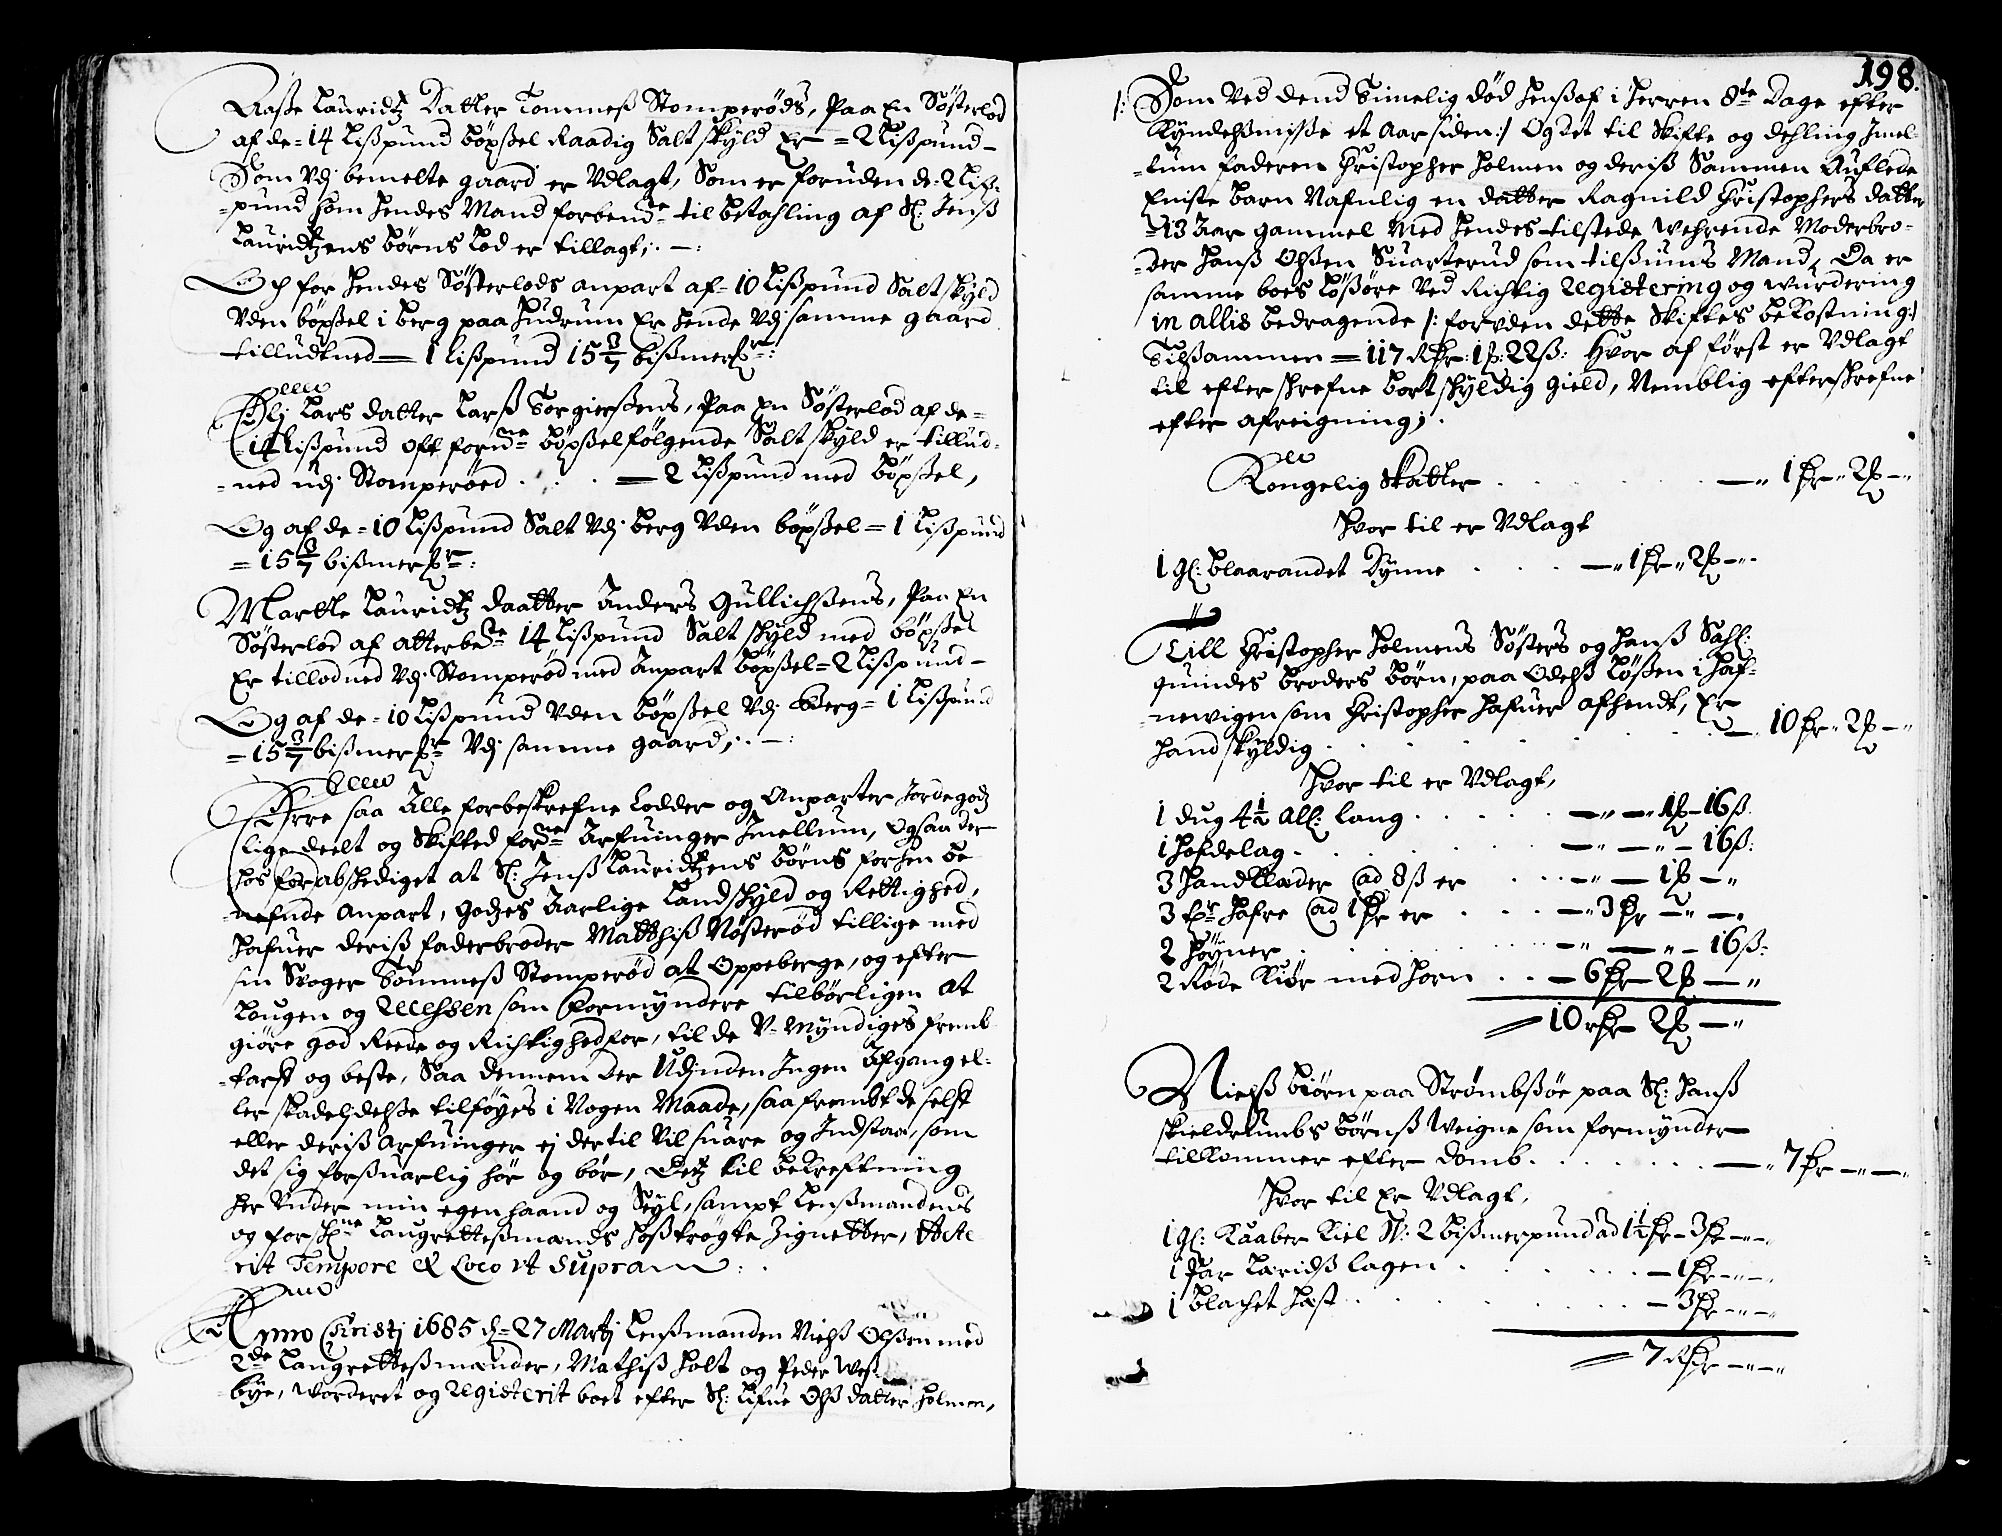 Aaße Lauridtz Datter Tommeß Stomperøds, Paa En Søsterlod
af de = 14 Lißpund böxßel Raadig Salt skyld Er = 2 Lißpund -
Som Vdj bemelte gaard er Vdlagt, Som er foruden de 2 Liß-
pund som hendes Mand forbende til betahling af Sl: Jenß
Lauridtzens börns Lod er tillagt;
Och for hendes Søsterlods anpart af = 10 Lißpund Salt skyld
Vden böxßel i berg paa Hudrum Er hende Vdj samme gaard
tilludtned — 1 Lißpund 15 3/7 bißmerpr:
Elj Lars datter Larß Torgierßens, Paa En Søsterlod af de =
14 Lißpund oft fornne böxßelfølgende Salt skyld er tillud-
ned udj Stomperöed . . . — 2 Lißpund med böxßel,
Og af de = 10 Lißpund Salt Vdj berg Vden böxßel = 1 Lißpund
= 15 3/7 bißmerpr:
Martte Lauridtz daatter Anders Gullichßens, Paa En
Søsterlod af atterbete 14 Lißpund Salt skyld med böxßel
Er tillodned Vdj Stomperöd med Anpart böxßel = 2 Lißpund -
Og af de = 10 Lißpund Vden böxßel Vdj Berg = 1 Lißpund
= 15 3/7 bißmerpr Vdj samme gaard;
Ere saa Alle forbeskrefne Lodder og Anparter Jordegodz
ligedeelt og Skifted forne Arfuinger Jmellum, Ogsaa der
hos forabskediget at Sl: Jenß Lauridtzens börns forhen be
nefnde Anpart, Godzes Aarlige Landskyld og Rettighed,
hafuer deriß faderbroder Matthiß Nösterød tillige med
sin Svoger Tommeß Stomperöd at Oppeberge, og efter
Lougen og Recessen som formyndere tilbörligen at
giöre god Reede og Richtighed for, til de V-Myndiges fremb-
tarf og beste, Saa dennem der Udjnden Jngen Afgang el-
ler skadeljdelse tilföyes i Nogen Maade, saa frembt de self
eller deriß Arfuinger ej der til Vil suare og Jndstaa, som
det sig forsuarlig hör og bör, Detz til bekreftning
her Vnder min egen haand og Seyl, sampt Lenßmandens
og forskne Laugretteßmænds hoßtrögte Zignetter, Acte-
rit Tempore et Loco vt Supra
Anno Christj 1685 d = 27 Martj Lenßmanden Nielß Olßen med
2de Laugretteßmænder, Mathiß Holt og Peder Weß-
bye, Worderet og Registerit boet efter Sl: Lifue Olß datter Holmen,
198.
/: Som Ved dend Timelig död henßof i Herren 8te Dage efter
Kyndelßmisse et Aar siden :/ Og det til Skifte og dehling Jmel-
lum faderen Christopher Holmen og deriß Sammen Auflede
Eniste barn Nafnlig en datter Ragnild Christophers datter
13 Aar gammel Med hendes tilstede Wehrende Moderbro-
der Hanß Olßen Suarterud som tilßiuns Mand, Da er
samme boes Lößöre Ved Richtig Registering og Wurdering
in allis bedragende /: foruden dette Skiftes bekostning :/
Tilßammen = 117 Rdr: 1 ₰: 22 ß: Hvor af först er Vdlagt
til efterskrefne bortskyldig Gield, Nemblig efterskrefne
efter afreigning;
Kongelig Skatter . . . — 1 dr 2 ₰ —
Hvor til er Vdlagt
1 gl: blaarandet Dynne . . . — 1 dr 2 ₰ —
Till Christopher Holmens Søsters og Hanß Sahl:
quindes broders börn, paa Odelß Lößen i Haf-
newigen som Christopher hafuer afhendt, Er
hand skyldig . . . — 10 dr 2 ₰ —
Hvor til er Vdlagt,
1 dug 4 1/2 All: lang . . . — 1 ₰ - 16 ß.
1 hofdelag . . . — 16 ß:
3 Handklæder ad 8 ß er . . . — 1 ₰ —
3 tr Hafre ad 1 dr er . . . — 3 dr — —
2 höyner . . . — 16 ß:
2 Røde Kiör med horn . . — 6 dr 2 ₰ —
10 rdr 2 ₰ —
Nielß biörn paa Strömbßöe paa Sl: Hanß
skieldrumbs börnß Weigne som formynder
tilkommer efter domb . . . — 7 dr — —
Hvor til Er Vdlagt,
1 gl: Kaaber Kiel W: 2 bißmerpund ad 1 1/2 dr - 3 dr — —
1 Par Læridß lagen . . . — 1 dr — —
1 blachet hest . . . — 3 dr — —
7 Rdr — —